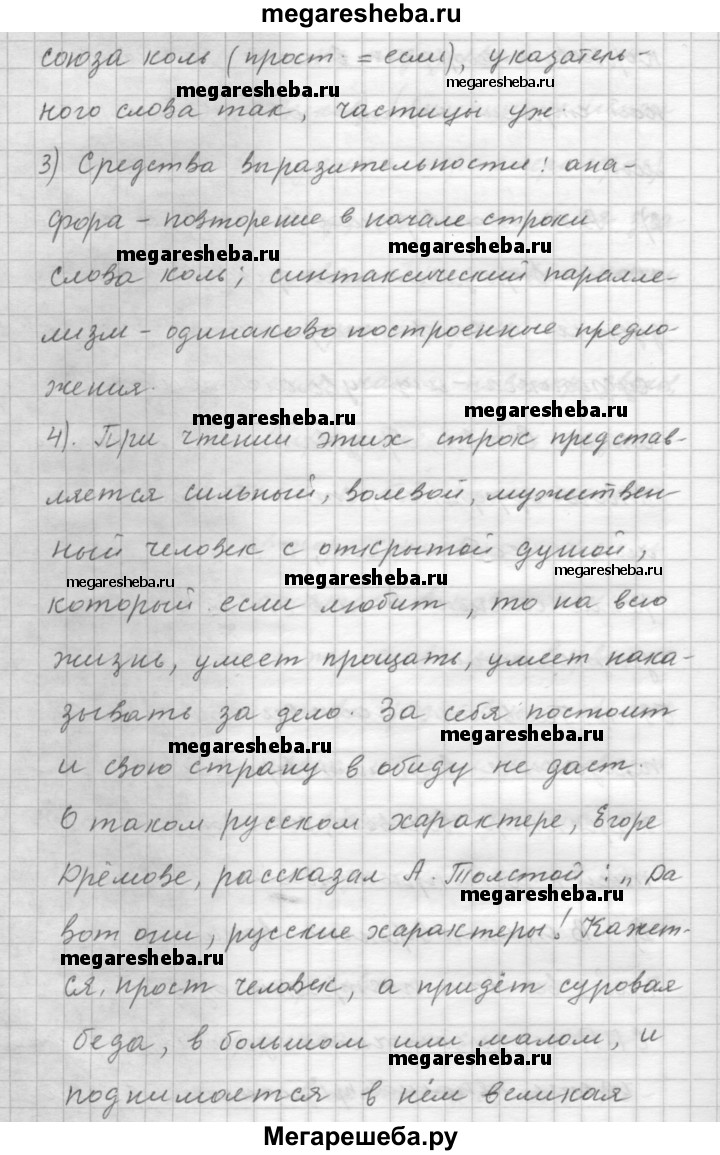 megaresheba.ru
союза коль (прост. = если), указатель-
megaresheba.ru megaresheba.ru
ного слова так, частицы уж.
3) Средства выразительности: ана-
фора - повторение в начале строки
megaresheba.ru megaresheba.ru
слова коль; синтаксический паралле-
лизм - одинаково построенные предло-
жения.
megaresheba.ru megaresheba.ru
4). При чтении этих строк представ-
ляется сильный, волевой, мужествен-
ный человек с открытой душой,
megaresheba.ru megaresheba.ru megaresheba.ru
который если любит, то на всю
жизнь, умеет прощать, умеет нака-
зывать за дело. За себя постоит
megaresheba.ru megaresheba.ru
и свою страну в обиду не даст.
О таком русском характере, Егоре
Дрёмове, рассказал А. Толстой: „Да
megaresheba.ru
вот они, русские характеры! Кажет-
megaresheba.ru
ся, прост человек, а придёт суровая
беда, в большом или малом, и
megaresheba.ru
поднимается в нём великая
Мегарешеба.ру